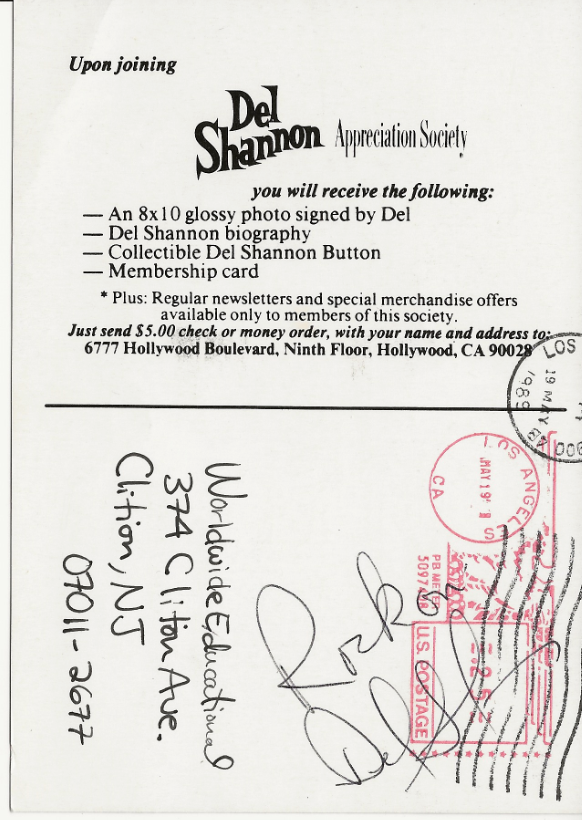 Upon joining
Del
Shannon Appreciation Society
you will receive the following:
— An 8x10 glossy photo signed by Del
— Del Shannon biography
— Collectible Del Shannon Button
— Membership card
* Plus: Regular newsletters and special merchandise offers
available only to members of this society.
Just send $5.00 check or money order, with your name and address to:
6777 Hollywood Boulevard, Ninth Floor, Hollywood, CA 90028
LOS
19 MAY
1989
LOS ANGELES
MAY 19
CA
PB METER
U.S. POSTAGE
Worldwide Educational
374 Clifton Ave.
Clifton, NJ
07011-2677
Rock
Del